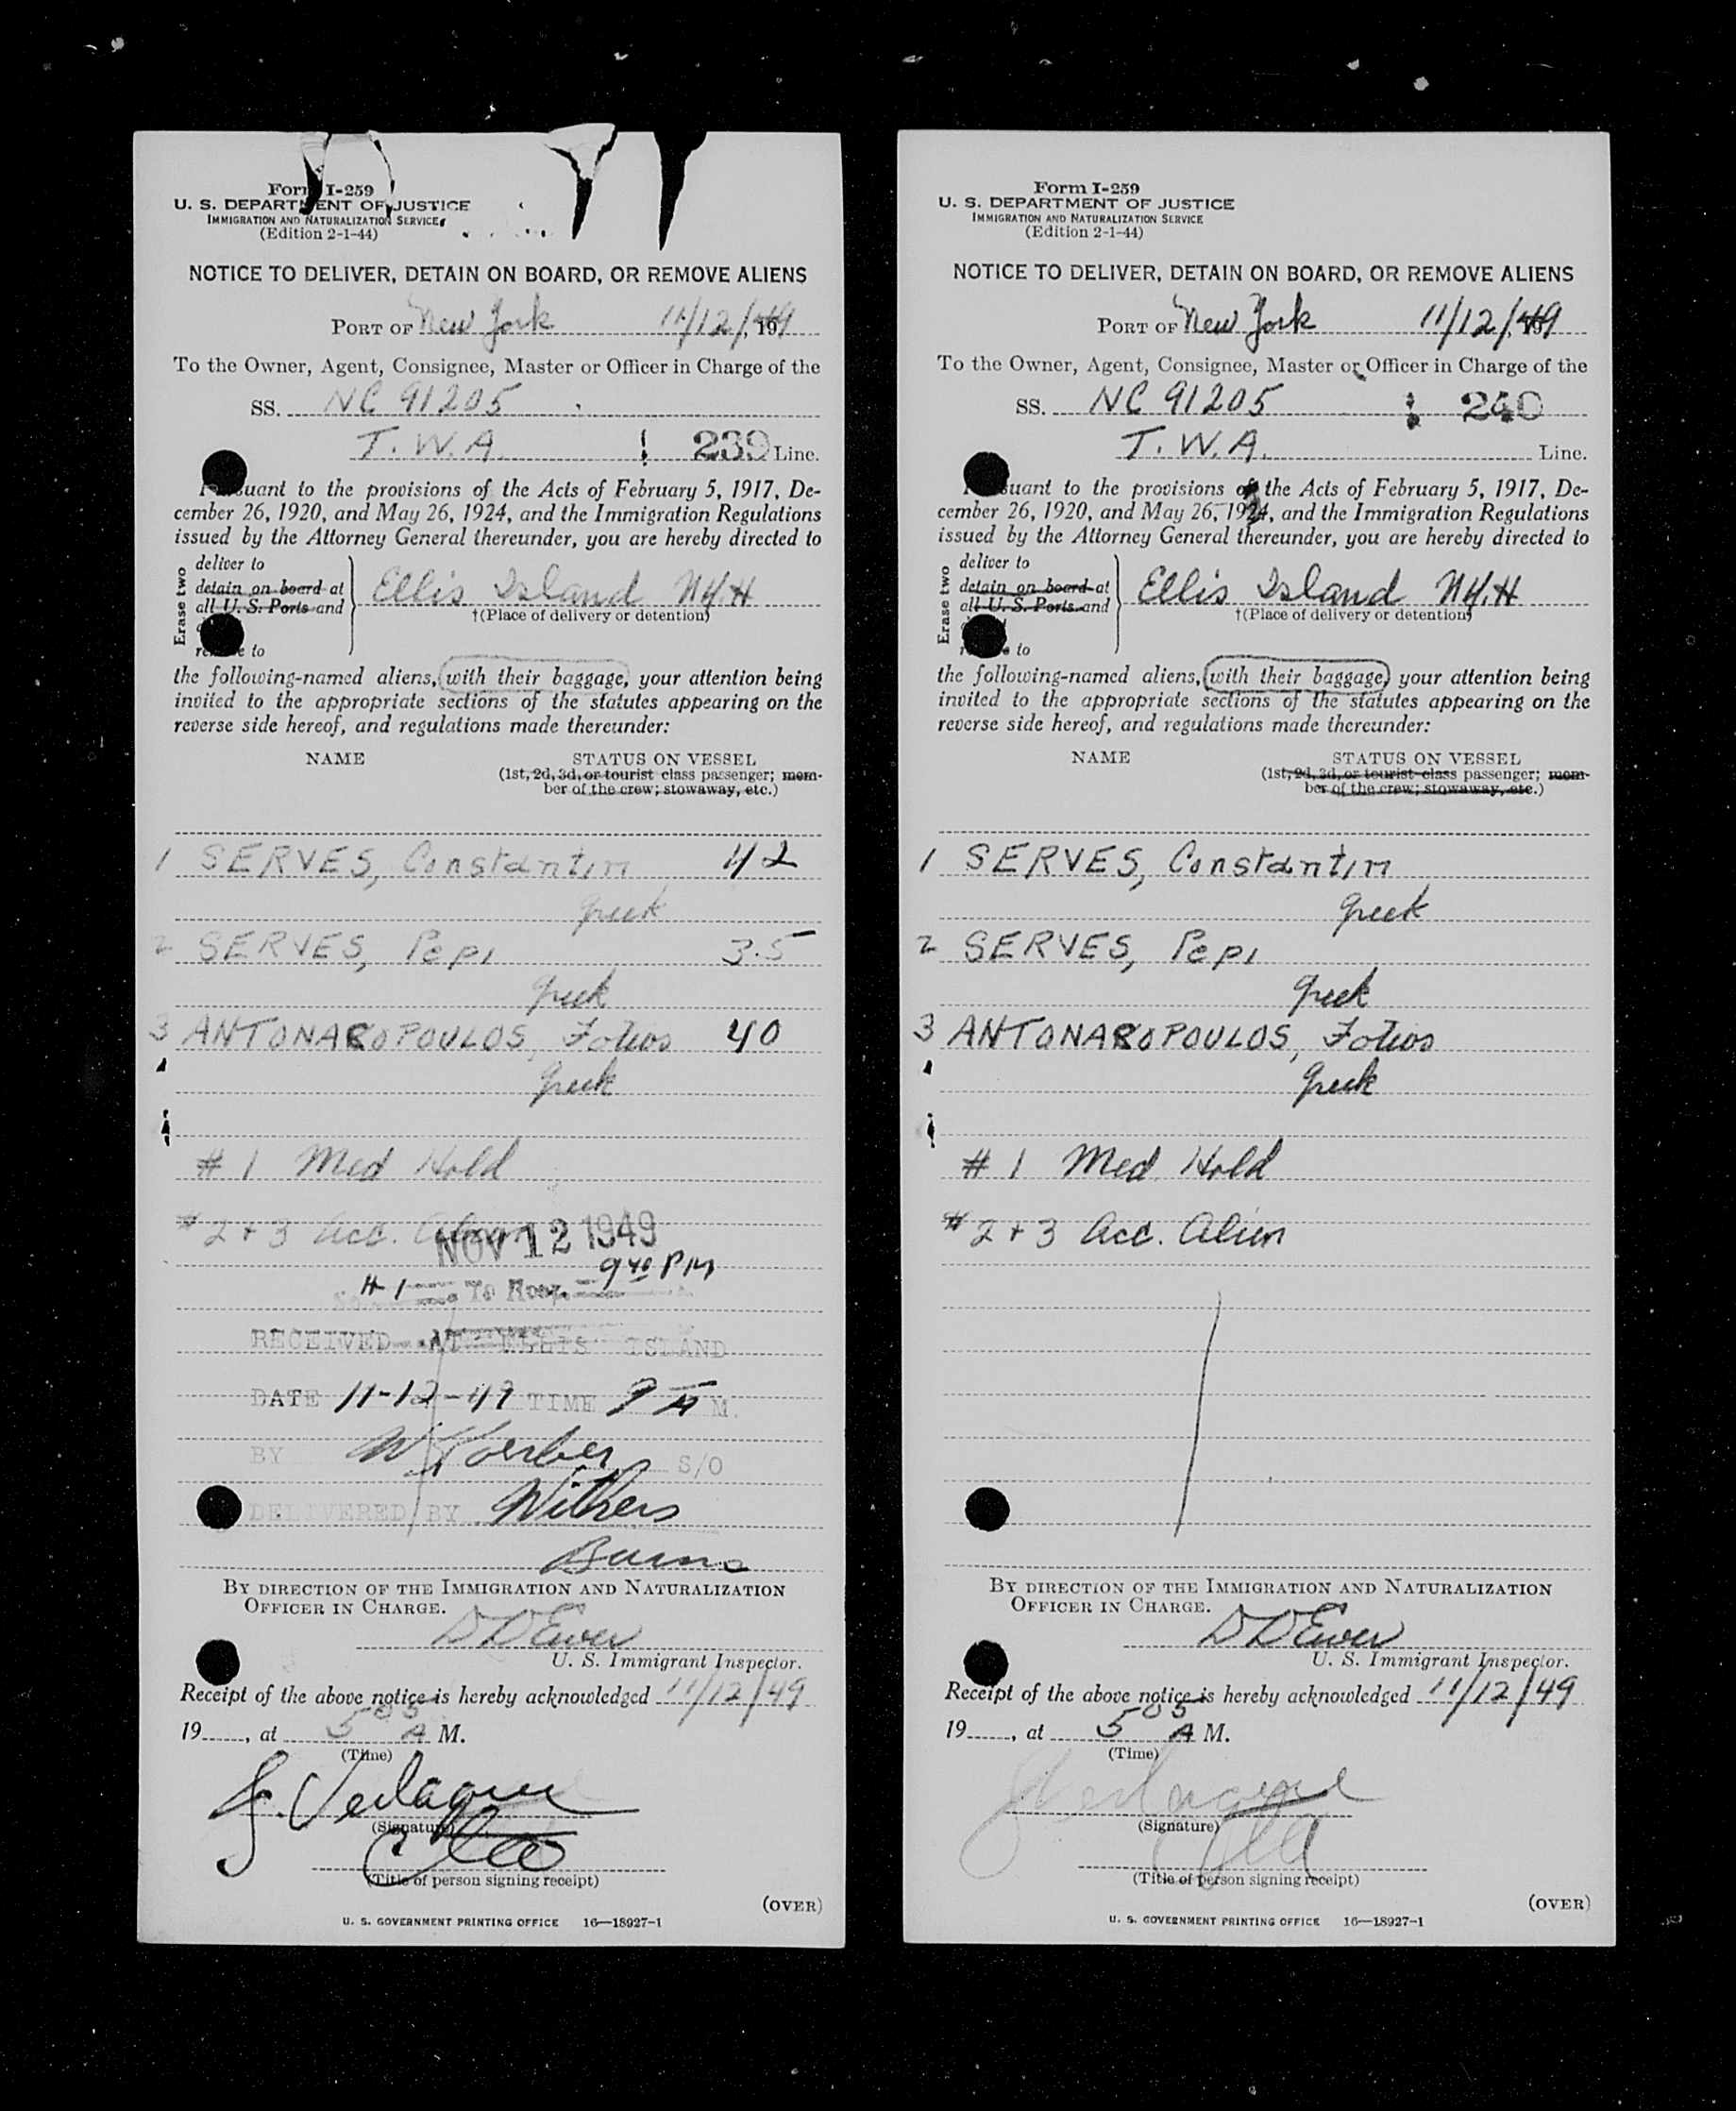 Form I-259
U. S. DEPARTMENT OF JUSTICE
IMMIGRATION AND NATURALIZATION SERVICE
(Edition 2-1-44)
NOTICE TO DELIVER, DETAIN ON BOARD, OR REMOVE ALIENS
PORT OF New York 11/12/, 1949
To the Owner, Agent, Consignee, Master or Officer in Charge of the
SS. NC 91205
T.W.A. 239 Line.
Pursuant to the provisions of the Acts of February 5, 1917, De-
cember 26, 1920, and May 26, 1924, and the Immigration Regulations
issued by the Attorney General thereunder, you are hereby directed to
Erase two
deliver to
detain on board at
all U. S. Ports and
to
Ellis Island NYH
†(Place of delivery or detention)
the following-named aliens, with their baggage, your attention being
invited to the appropriate sections of the statutes appearing on the
reverse side hereof, and regulations made thereunder:
NAME STATUS ON VESSEL
(1st, 2d, 3d, or tourist class passenger; mem-
ber of the crew; stowaway, etc.)
1 SERVES, Constantin 42
Greek
2 SERVES, Pepi 35
Greek
3 ANTONAROPOULOS, Fotios 40
Greek
# 1 Med Hold
# 2 + 3 Acc. Alien
NOV 12 1949
# 1 To Hosp. 9 40 PM
RECEIVED AT ELLIS ISLAND
DATE 11-12-49 TIME 9 A M.
BY W Koerber S/O
DELIVERED BY Withers
Burns
BY DIRECTION OF THE IMMIGRATION AND NATURALIZATION
OFFICER IN CHARGE.
D D Ewer
U. S. Immigrant Inspector.
Receipt of the above notice is hereby acknowledged 11/12/49
19, at 5 05 A M.
(Time)
(Signature)
(Title of person signing receipt)
(OVER)
U. S. GOVERNMENT PRINTING OFFICE 16—18927-1
Form I-259
U. S. DEPARTMENT OF JUSTICE
IMMIGRATION AND NATURALIZATION SERVICE
(Edition 2-1-44)
NOTICE TO DELIVER, DETAIN ON BOARD, OR REMOVE ALIENS
PORT OF New York 11/12/, 49
To the Owner, Agent, Consignee, Master or Officer in Charge of the
SS. NC 91205 240
T.W.A. Line.
Pursuant to the provisions of the Acts of February 5, 1917, De-
cember 26, 1920, and May 26, 1924, and the Immigration Regulations
issued by the Attorney General thereunder, you are hereby directed to
Erase two
deliver to
detain on board at
all U. S. Ports and
to
Ellis Island NYH
†(Place of delivery or detention)
the following-named aliens, with their baggage, your attention being
invited to the appropriate sections of the statutes appearing on the
reverse side hereof, and regulations made thereunder:
NAME STATUS ON VESSEL
(1st, 2d, 3d, or tourist class passenger; mem-
ber of the crew; stowaway, etc.)
1 SERVES, Constantin
Greek
2 SERVES, Pepi
Greek
3 ANTONAROPOULOS, Fotios
Greek
# 1 Med Hold
# 2 + 3 Acc. Alien
BY DIRECTION OF THE IMMIGRATION AND NATURALIZATION
OFFICER IN CHARGE.
D D Ewer
U. S. Immigrant Inspector.
Receipt of the above notice is hereby acknowledged 11/12/49
19, at 5 05 A M.
(Time)
(Signature)
(Title of person signing receipt)
(OVER)
U. S. GOVERNMENT PRINTING OFFICE 16—18927-1